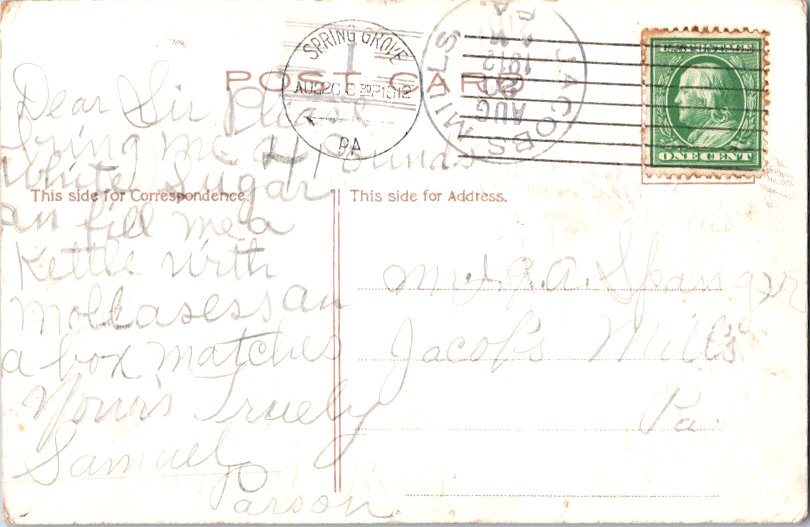 POST CARD
SPRING GROVE
PA
JACOBS MILLS
AUG
1912
PA
U.S. POSTAGE
ONE CENT
Dear Sir Please
bring me 4 Pounds
White Sugar
This side for Correspondence.
an fill me a
Kettle with
Mollasess an
a box matches
Yours Truely
Samuel
Parson
This side for Address.
Mr. J. A. Spangler
Jacobs Mills
Pa.